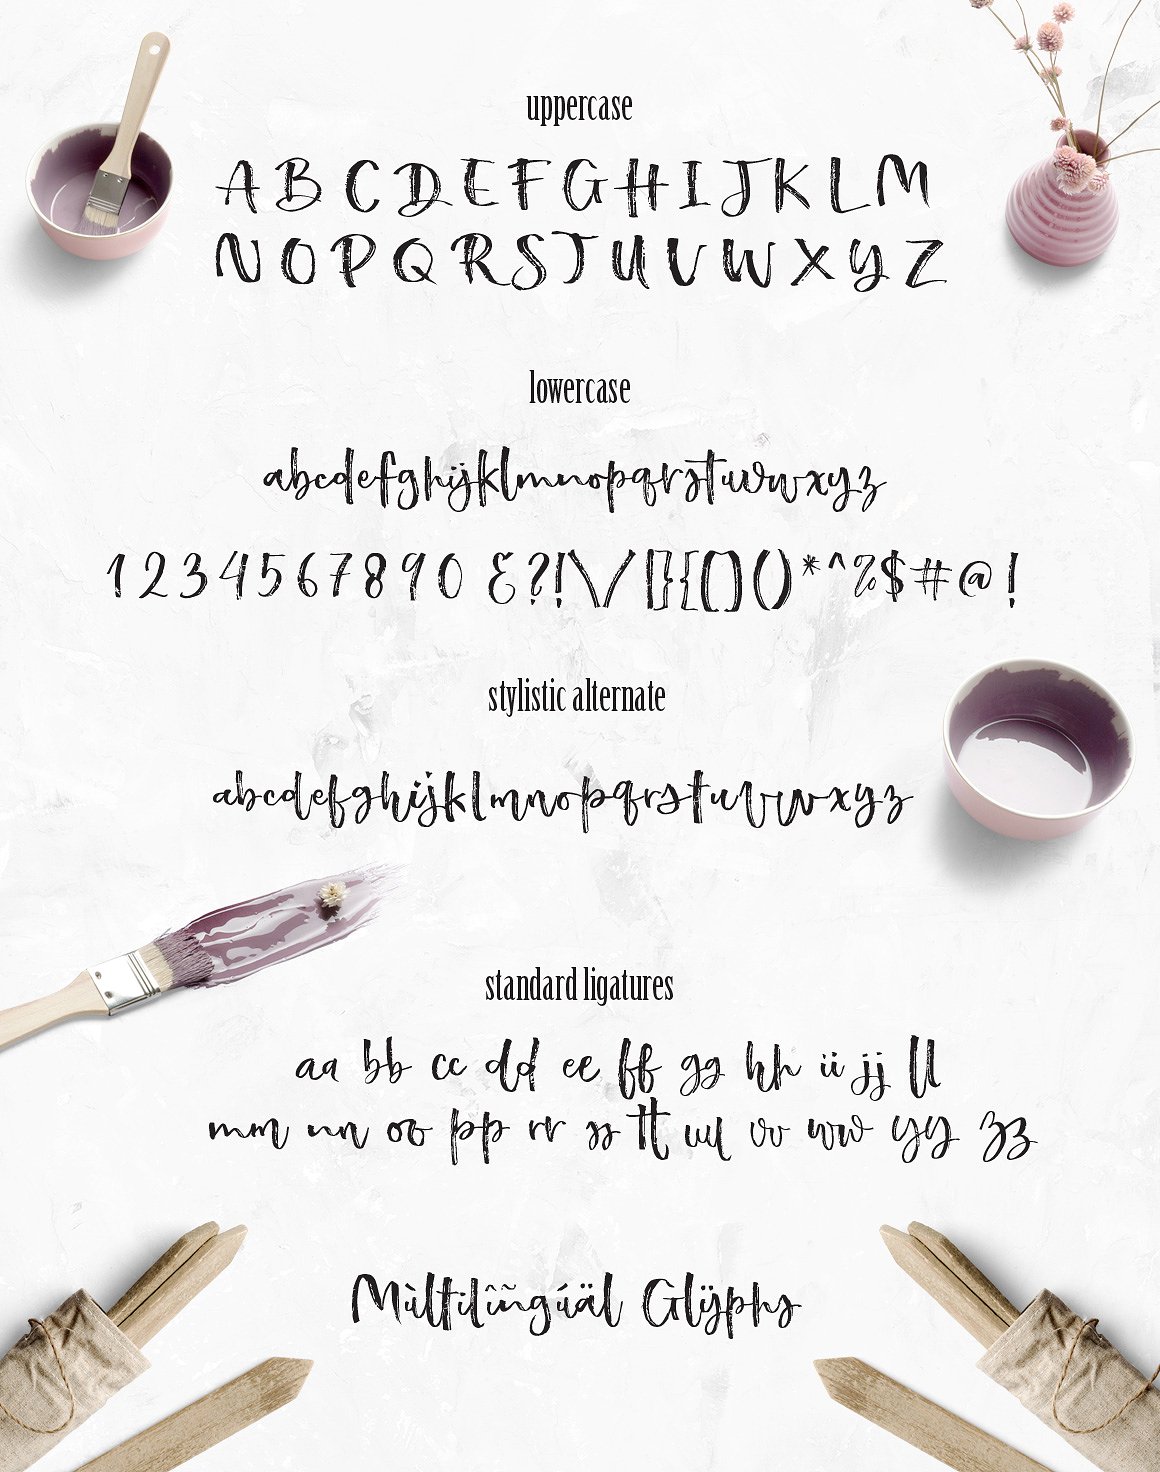 uppercase
A B C D E F G H I J K L M
N O P Q R S T U V W X Y Z
lowercase
abcdefghijklmnopqrstuvwxyz
1 2 3 4 5 6 7 8 9 0 &?!\/[]{}()*^%$#@!
stylistic alternate
abcdefghijklmnopqrstuvwxyz
standard ligatures
aa bb cc dd ee ff gg hh ii jj ll
mm nn oo pp rr ss tt uu vv ww yy zz
Mùltilîñgúäl Glÿphs